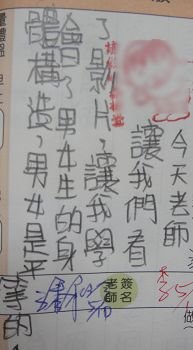 今天老師
讓我們看
了影片，讓我學
會了男女生的身
體構造，男女是平
等的
老師
簽名